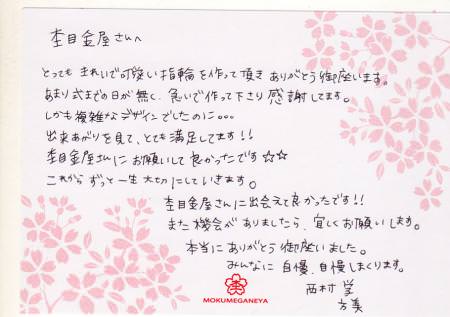 杢目金屋さんへ
とっても きれいで可愛い指輪を作って頂き ありがとう御座います。
あまり式までの日が無く、急いで作って下さり 感謝してます。
しかも複雑なデザインでしたのに…
出来あがりを見て、とても満足してます!!
杢目金屋さんにお願いして良かったです☆☆
これから ずっと一生 大切にしていきます。
杢目金屋さんに出会えて良かったです!!
また機会がありましたら、宜しくお願いします。
本当にありがとう御座いました。
みんなに自慢、自慢しまくります。
西村 学
MOKUMEGANEYA